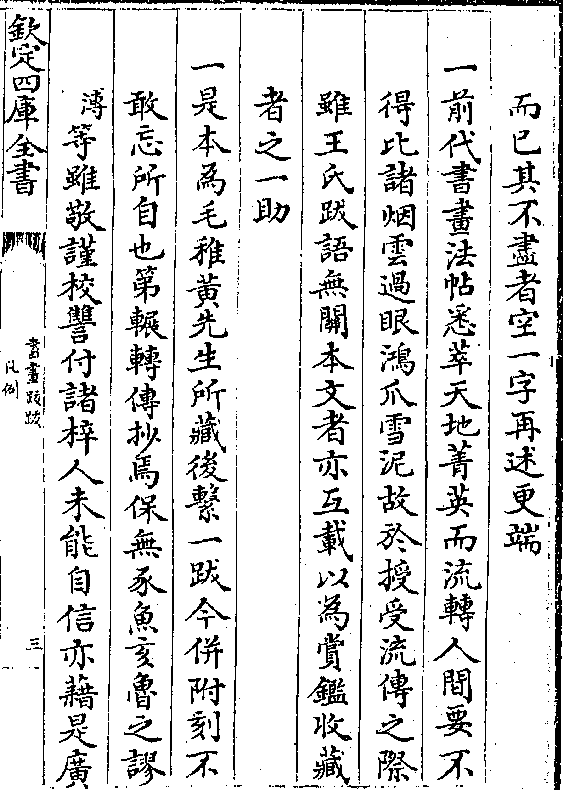 而已其不盡者空一字再述更端
一前代書畫法帖悉萃天地菁英而流轉人間要不
得比諸烟雲過眼鴻爪雪泥故於授受流傳之際
雖王氏跋語無關本文者亦互載以為賞鑑收藏
者之一助
一是本為毛稚黃先生所藏後繫一跋今併附刻不
敢忘所自也第輾轉傳抄焉保無豕魚亥魯之謬
溥等雖敬謹校讐付諸梓人未能自信亦藉是廣
欽定四庫全書
書畫跋跋
凡例
三